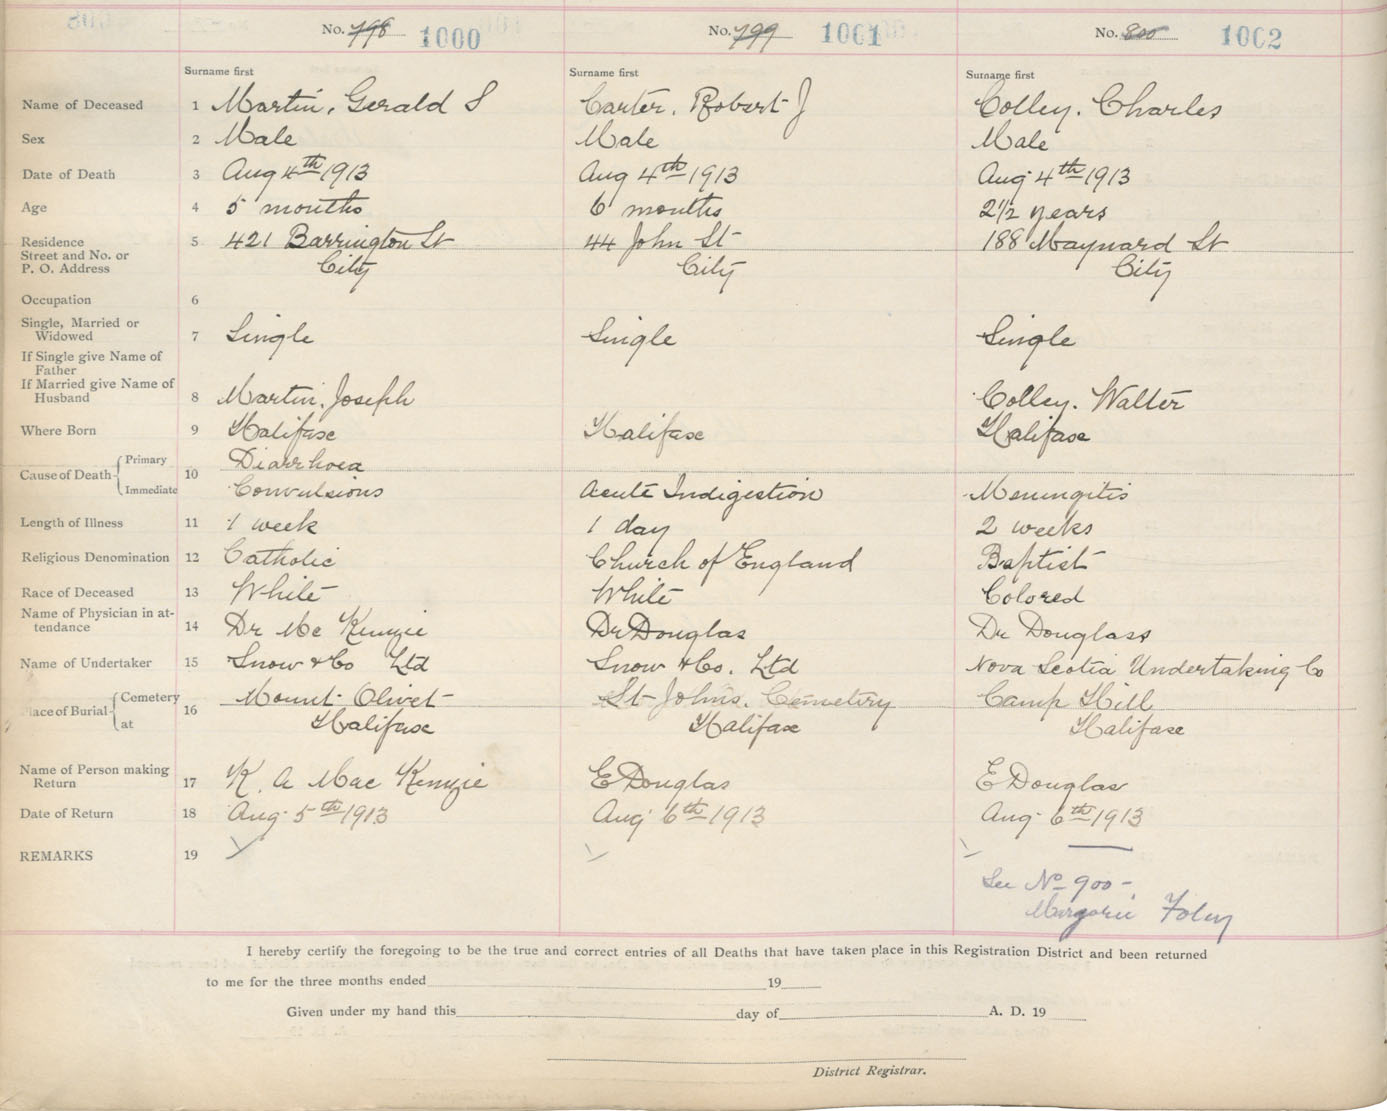 No. 798 1000 No. 799 1001 No. 800 1002
Surname first Surname first Surname first
Name of Deceased 1 Martin, Gerald S Carter, Robert J Colley, Charles
Sex 2 Male Male Male
Date of Death 3 Aug 4th 1913 Aug 4th 1913 Aug 4th 1913
Age 4 5 months 6 months 2 1/2 years
Residence 5 421 Barrington St 44 John St 188 Maynard St
Street and No. or
P. O. Address City City City
Occupation 6
Single, Married or
Widowed 7 Single Single Single
If Single give Name of
Father
If Married give Name of
Husband 8 Martin, Joseph Colley, Walter
Where Born 9 Halifax Halifax Halifax
Cause of Death Primary 10 Diarrhoea
Immediate Convulsions Acute Indigestion Meningitis
Length of Illness 11 1 week 1 day 2 weeks
Religious Denomination 12 Catholic Church of England Baptist
Race of Deceased 13 White White Colored
Name of Physician in at-
tendance 14 Dr Mc Kenzie Dr Douglas Dr Douglass
Name of Undertaker 15 Snow & Co Ltd Snow & Co. Ltd Nova Scotia Undertaking Co
Place of Burial Cemetery 16 Mount Olivet St Johns. Cemetery Camp Hill
at Halifax Halifax Halifax
Name of Person making
Return 17 K. A Mac Kenzie E Douglas E Douglas
Date of Return 18 Aug 5th 1913 Aug 6th 1913 Aug 6th 1913
REMARKS 19
See No 900-
Marjorie Foley
I hereby certify the foregoing to be the true and correct entries of all Deaths that have taken place in this Registration District and been returned
to me for the three months ended 19
Given under my hand this day of A. D. 19
District Registrar.